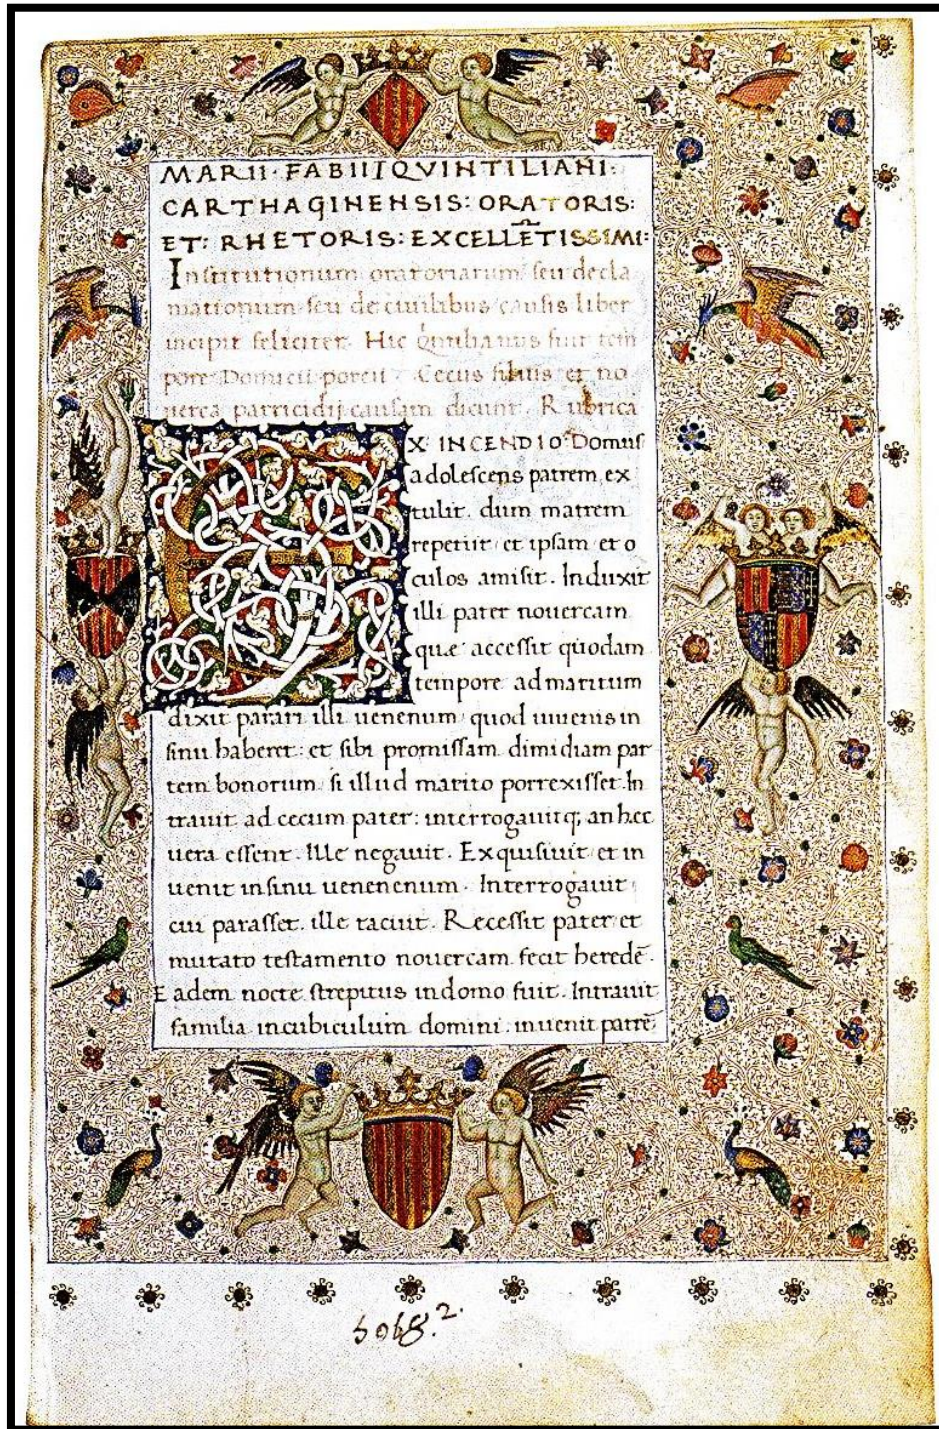 MARII·FABII QVINTILIANI:
CARTHAGINENSIS: ORATORIS:
ET: RHETORIS: EXCELLĒTISSIMI:
Institutionum oratoriarum seu decla
mationum seu de ciuilibus causis liber
incipit feliciter. Hic Quntilianus fuit tem
pore Domicii porcii. Cecus filius et no
uerca parricidij causam dicunt. Rubrica
EX INCENDIO Domus
adolescens patrem ex
tulit. dum matrem
reperiit et ipsam et o
culos amisit. Induxit
illi pater nouercam
quæ accessit quodam
tempore ad maritum
dixit parari illi uenenum quod iuuenis in
sinu haberet: et sibi promissam dimidiam par
tem bonorum si illud marito porrexisset. In
trauit ad cecum pater: interrogauitq; an hec
uera essent. Ille negauit. Exquisiuit et in
uenit in sinu uenenenum. Interrogauit
cui parasset. ille tacuit. Recessit pater et
mutato testamento nouercam fecit heredē.
Eadem nocte strepitus in domo fuit. Intrauit
familia in cubiculum domini. inuenit patrē